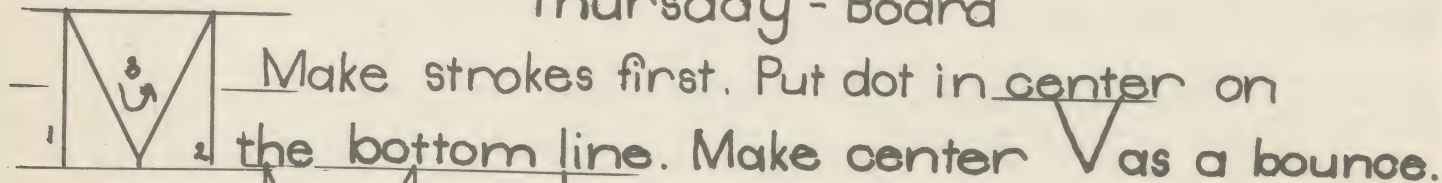 Thursday - Board
Make strokes first. Put dot in center on
the bottom line. Make center V as a bounce.
1 2 3